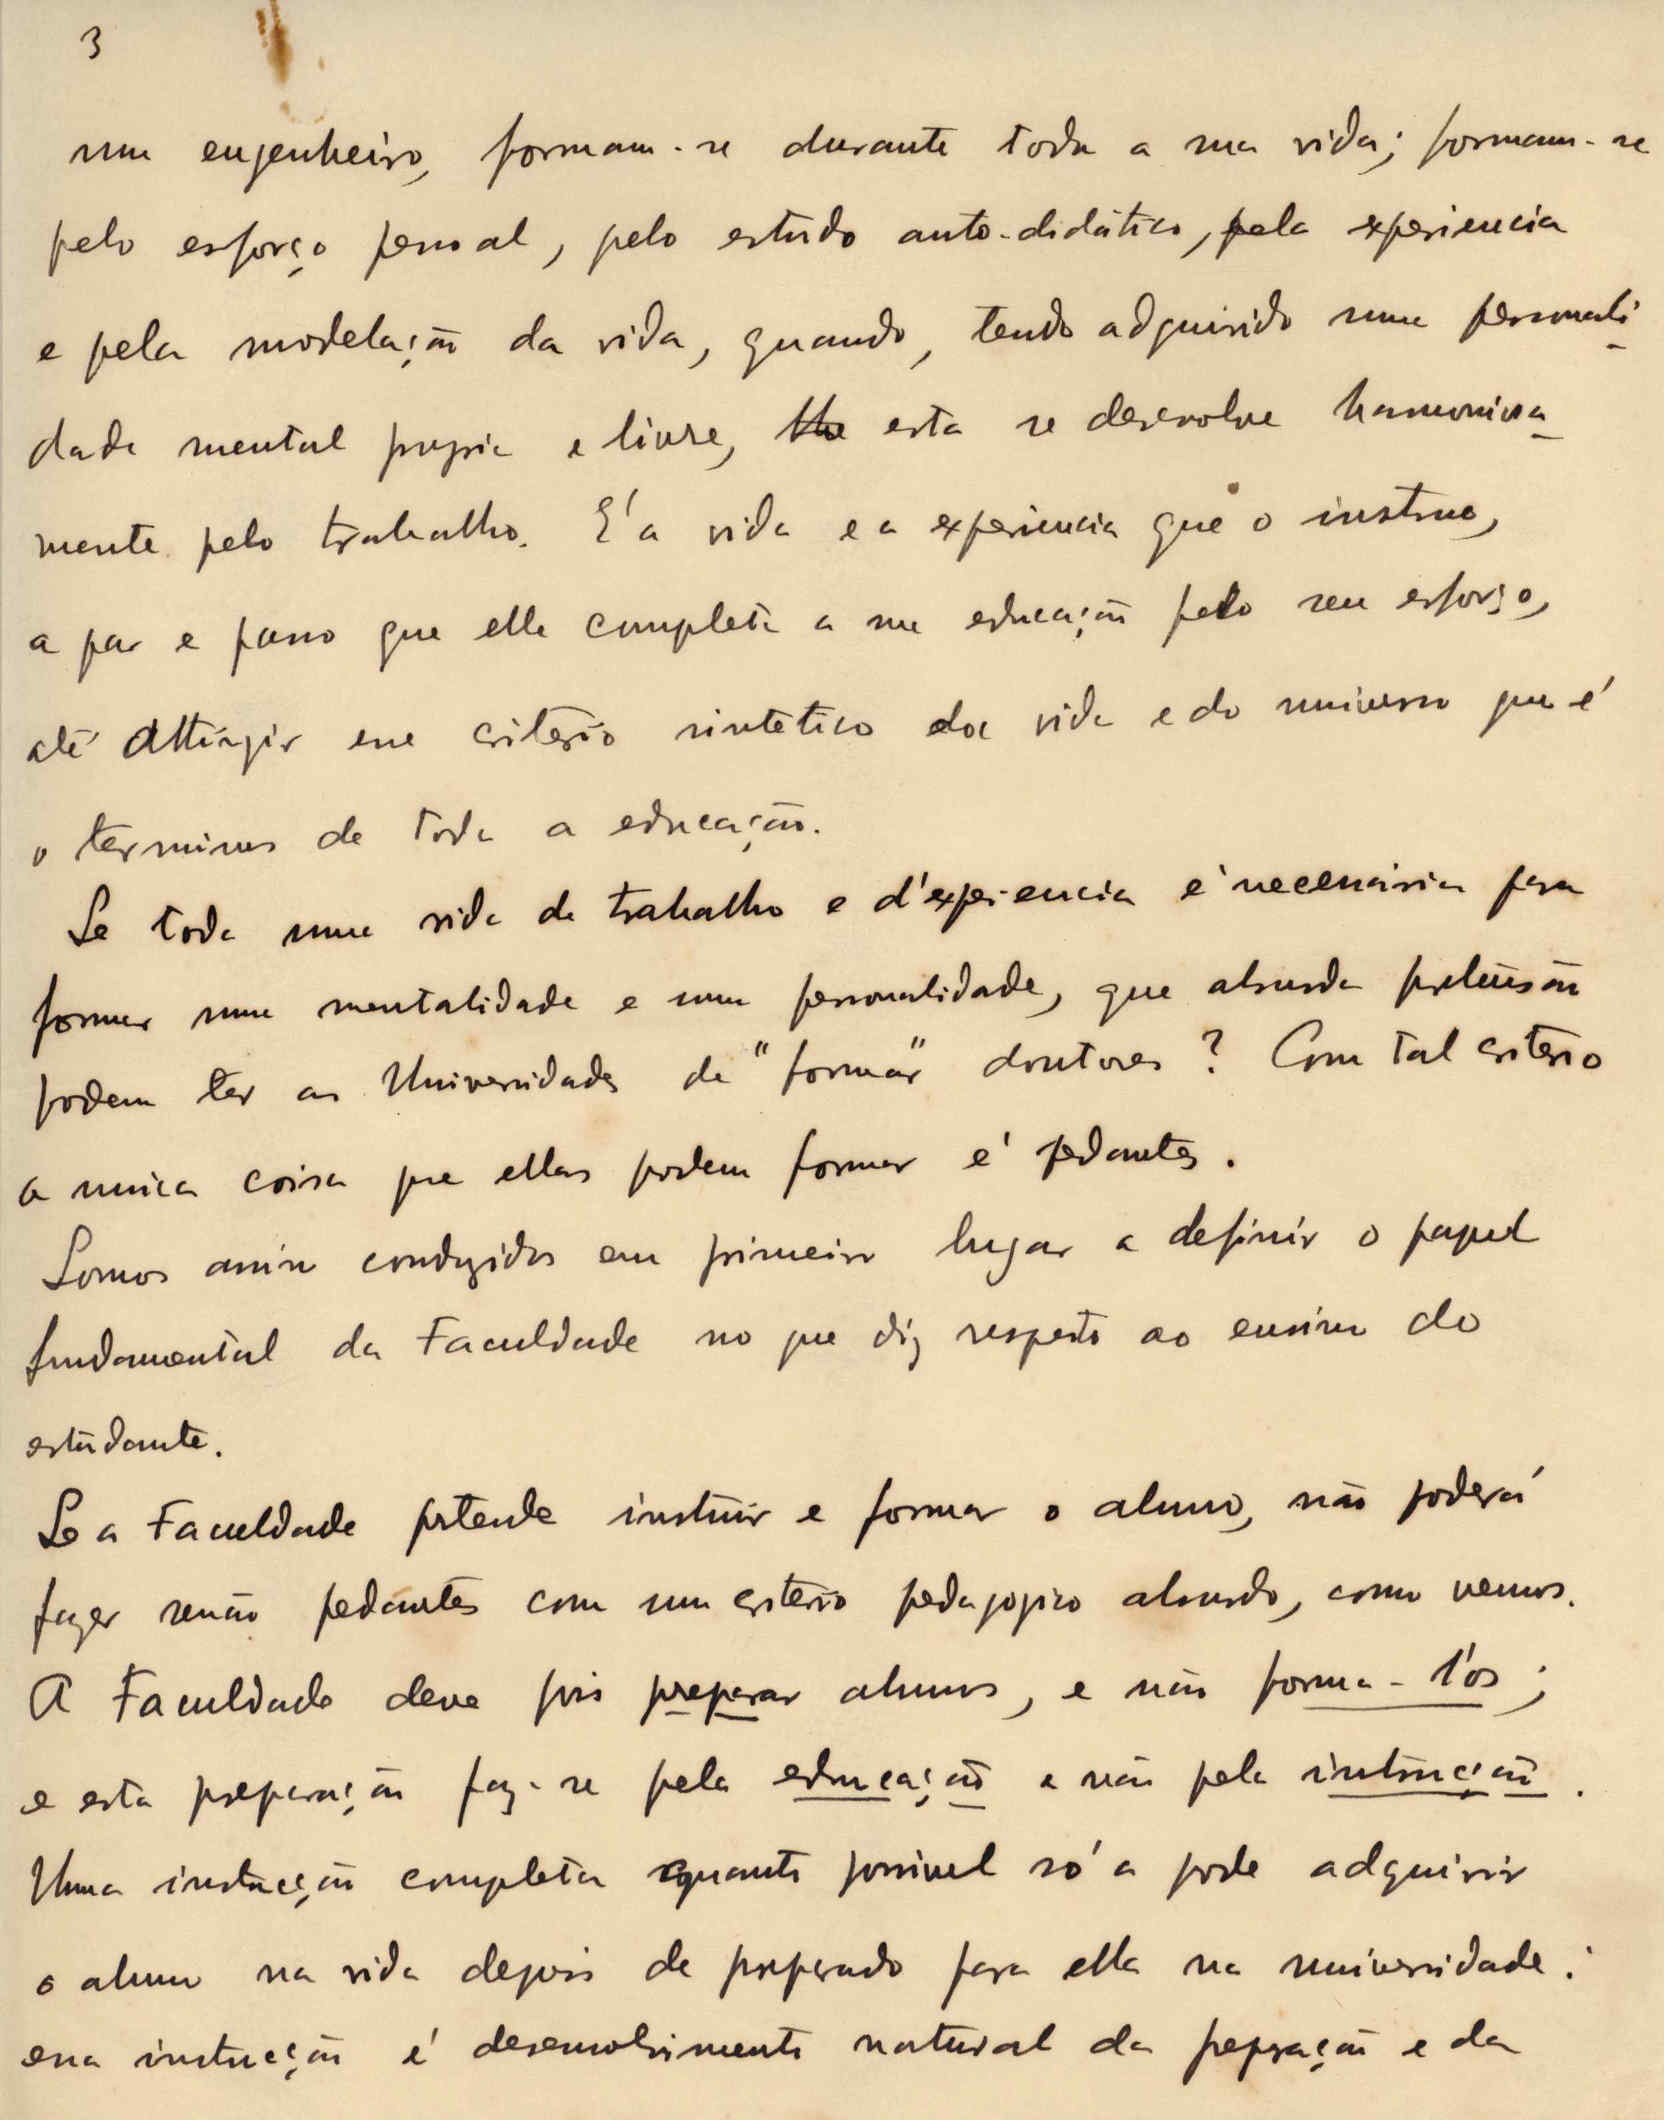 3
um engenheiro, formam-se durante toda a sua vida; formam-se
pelo esforço pessoal, pelo estudo auto-didático, pela experiencia
e pela modelação da vida, quando, tendo adquirido uma personali-
dade mental propria e livre, esta se desevolve harmoniosa-
mente pelo trabalho. E' a vida e a experiencia que o instrue,
a par e passo que elle completa a sua educação pelo seu esforço,
até attingir esse criterio sintetico da vida e do universo que é
o terminus de toda a educação.
Se toda uma vida de trabalho e d'experiencia é necessária para
formar uma mentalidade e uma personalidade, que absurda pretensão
podem ter as Universidades de "formar" doutores? Com tal criterio
a unica coisa que ellas podem formar é pedantes.
Somos assim conduzidos em primeiro lugar a definir o papel
fundamental da Faculdade no que diz respeito ao ensino do
estudante.
Se a Faculdade pretende instruir e formar o aluno, não poderá
fazer senão pedantes com um criterio pedagogico absurdo, como vemos.
A Faculdade deve pois preparar alunos, e não forma-l'os;
e esta preparação faz-se pela educação e não pela instrucção.
Uma instrucção completa quanto possivel só a pode adquirir
o aluno na vida depois de preparado para ella na universidade:
essa instrucção é desenvolvimento natural da preparação e da